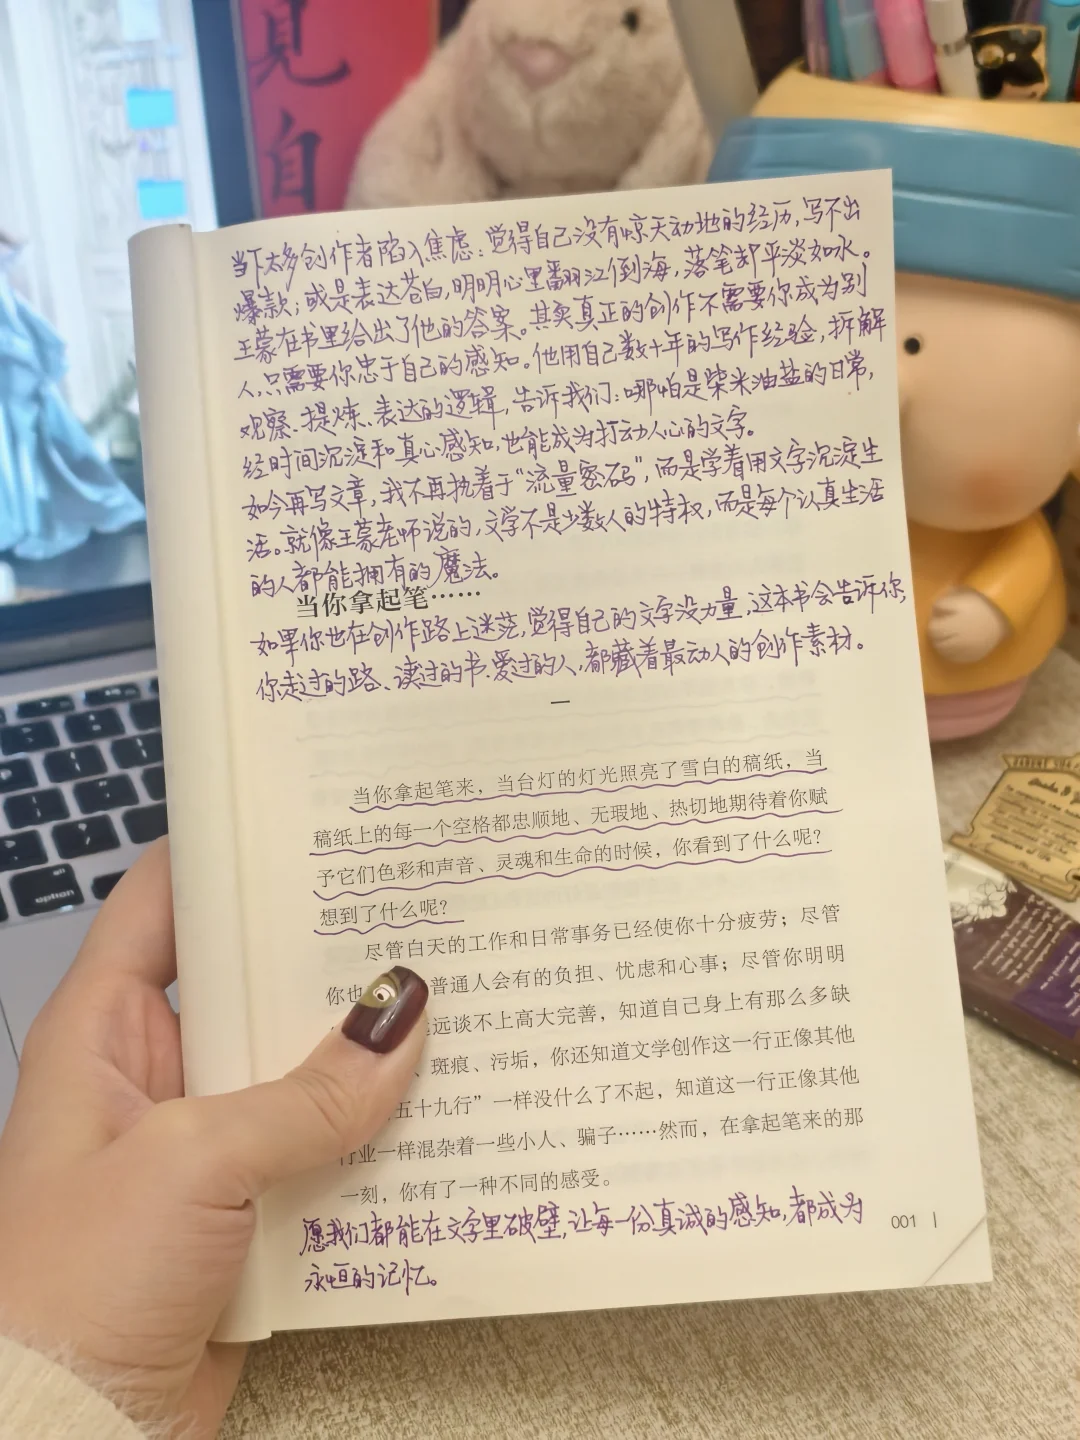 見
自
当下太多创作者陷入焦虑：觉得自己没有惊天动地的经历，写不出
爆款；或是表达苍白，明明心里翻江倒海，落笔却平淡如水。
王蒙在书里给出了他的答案。其实真正的创作不需要你成为别
人，只需要你忠于自己的感知。他用自己数十年的写作经验，拆解
观察、提炼、表达的逻辑，告诉我们：哪怕是柴米油盐的日常，
经时间沉淀和真心感知，也能成为打动人心的文字。
如今再写文章，我不再执着于“流量密码”，而是学着用文字沉淀生
活。就像王蒙老师说的，文学不是少数人的特权，而是每个认真生活
的人都能拥有的魔法。
当你拿起笔……
如果你也在创作路上迷茫，觉得自己的文字没力量，这本书会告诉你，
你走过的路、读过的书、爱过的人，都藏着最动人的创作素材。
一
当你拿起笔来，当台灯的灯光照亮了雪白的稿纸，当
稿纸上的每一个空格都忠顺地、无瑕地、热切地期待着你赋
予它们色彩和声音、灵魂和生命的时候，你看到了什么呢？
想到了什么呢？
尽管白天的工作和日常事务已经使你十分疲劳；尽管
你也 普通人会有的负担、忧虑和心事；尽管你明明
远谈不上高大完善，知道自己身上有那么多缺
、斑痕、污垢，你还知道文学创作这一行正像其他
五十九行”一样没什么了不起，知道这一行正像其他
行业一样混杂着一些小人、骗子……然而，在拿起笔来的那
一刻，你有了一种不同的感受。
愿我们都能在文字里破壁，让每一份真诚的感知，都成为
永恒的记忆。
001